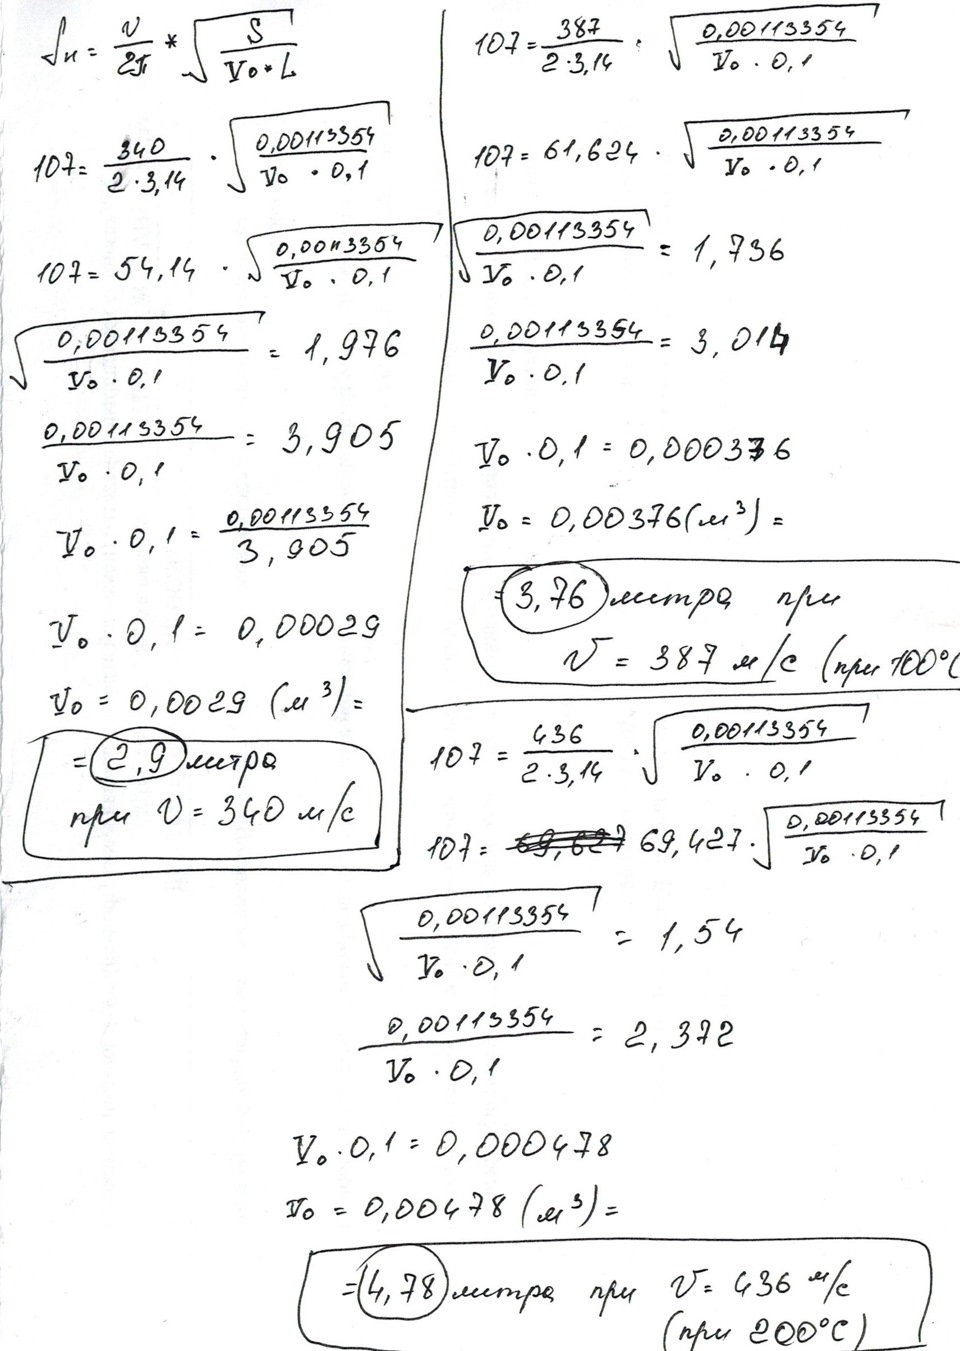 fн = v/2π * √(S/(V₀*L))
107 = 340/(2·3,14) · √(0,00113354/(V₀ · 0,1))
107 = 54,14 · √(0,00113354/(V₀ · 0,1))
√(0,00113354/(V₀ · 0,1)) = 1,976
0,00113354/(V₀ · 0,1) = 3,905
V₀ · 0,1 = 0,00113354/3,905
V₀ · 0,1 = 0,00029
V₀ = 0,0029 (м³) =
= 2,9 литра
при v = 340 м/с
107 = 387/(2·3,14) · √(0,00113354/(V₀ · 0,1))
107 = 61,624 · √(0,00113354/(V₀ · 0,1))
√(0,00113354/(V₀ · 0,1)) = 1,736
0,00113354/(V₀ · 0,1) = 3,014
V₀ · 0,1 = 0,000376
V₀ = 0,00376 (м³) =
= 3,76 литра при
v = 387 м/с (при 100°C
107 = 436/(2·3,14) · √(0,00113354/(V₀ · 0,1))
107 = 69,427 · √(0,00113354/(V₀ · 0,1))
√(0,00113354/(V₀ · 0,1)) = 1,54
0,00113354/(V₀ · 0,1) = 2,372
V₀ · 0,1 = 0,000478
V₀ = 0,00478 (м³) =
= 4,78 литра при v = 436 м/с
(при 200°C)